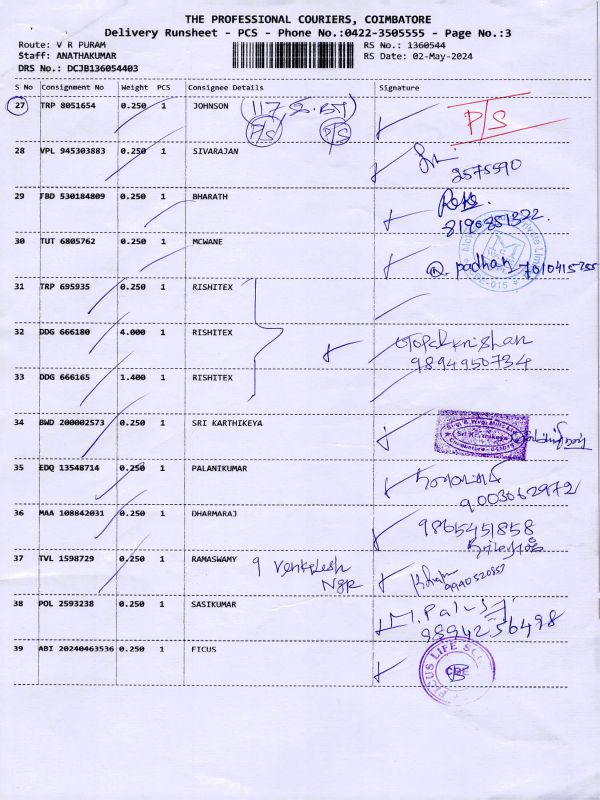 THE PROFESSIONAL COURIERS, COIMBATORE
Delivery Runsheet - PCS - Phone No.:0422-3505555 - Page No.:3
Route: V R PURAM
RS No.: 1360544
Staff: ANATHAKUMAR
RS Date: 02-May-2024
DRS No.: DCJB136054403
S No Consignment No Weight PCS Consignee Details Signature
27 TRP 8051654 0.250 1 JOHNSON P/S P/S P/S
28 VPL 945303883 0.250 1 SIVARAJAN
29 FBD 530184809 0.250 1 BHARATH
8190851322
30 TUT 6805762 0.250 1 MCWANE padhan 7010415255
31 TRP 695935 0.250 1 RISHITEX
32 DDG 666180 4.000 1 RISHITEX
9894950734
33 DDG 666165 1.400 1 RISHITEX
34 BWD 200002573 0.250 1 SRI KARTHIKEYA
35 EDQ 13548714 0.250 1 PALANIKUMAR
9003062972
36 MAA 108842031 0.250 1 DHARMARAJ 9865451858
37 TVL 1598729 0.250 1 RAMASWAMY 9 Venkatesh
Ngr
38 POL 2593238 0.250 1 SASIKUMAR
9894256498
39 ABI 20240463536 0.250 1 FICUS
FICUS LIFE SCI
CBE